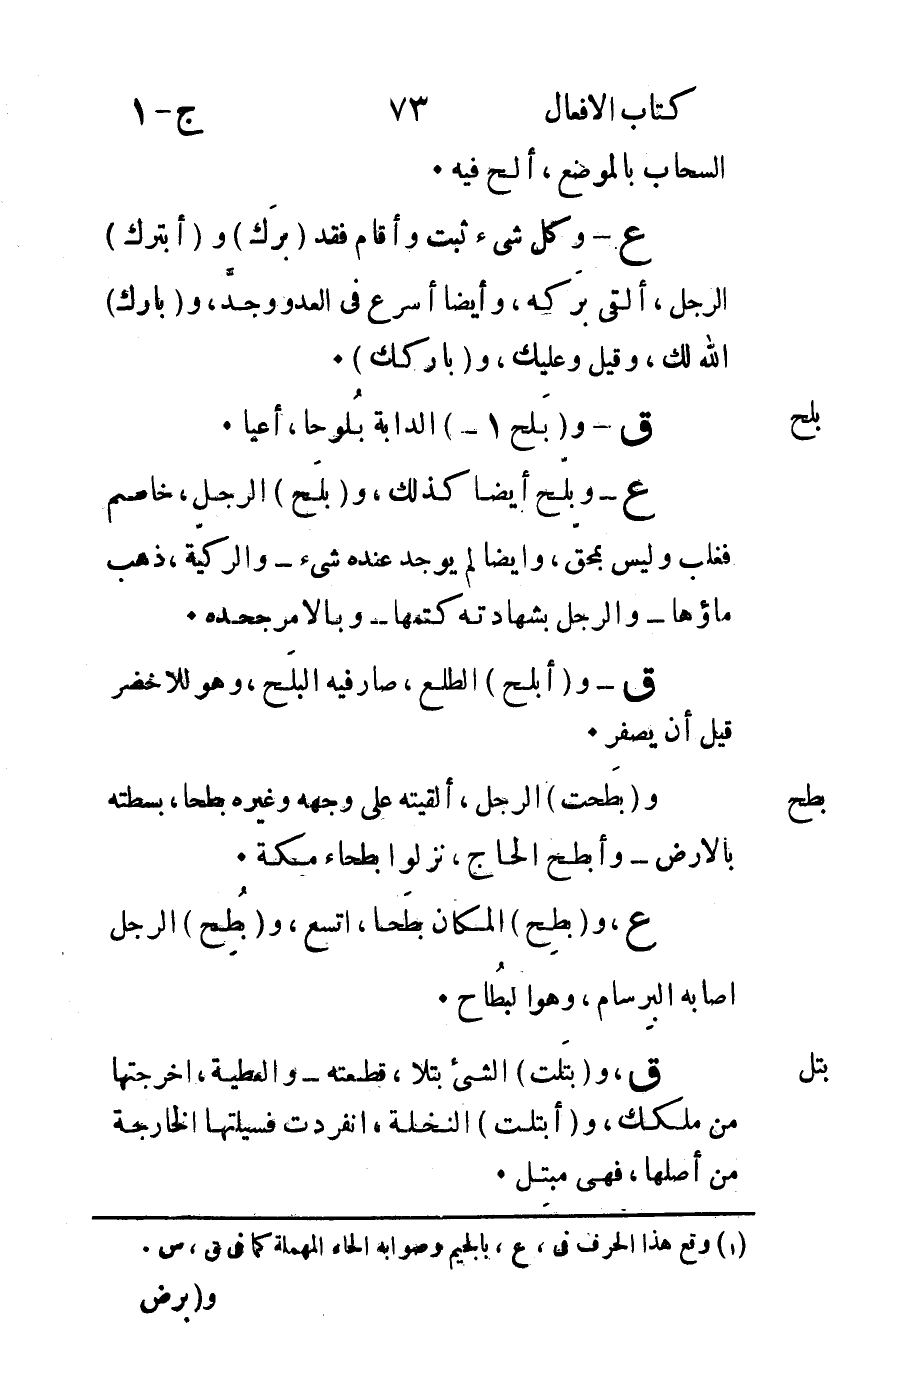 كتاب الافعال ٧٣ ج-١
السحاب بالموضع ، ألح فيه •
ع – وكل شىء ثبت وأقام فقد ( بَرَك ) و ( أبترك )
الرجل ، ألتى بَركه ، وأيضا أسرع فى العدو وجدّ ، و ( بارك )
الله لك ، وقيل وعليك ، و ( باركك ) •
بلح
ق – و ( بَلح ١ – ) الدابة بُلوحا ، أعيا •
ع – وبلّح أيضا كذلك ، و ( بلَح ) الرجل ، خاصم
فغلب وليس بمحق ، وايضا لم يوجد عنده شىء – والركيّة ، ذهب
ماؤها – والرجل بشهادته كتمها – وبالامر جحده •
ق – و ( أبلح ) الطلع ، صار فيه البلَح ، وهو للاخضر
قيل أن يصفر •
بطح
و ( بطَحت ) الرجل ، ألقيته على وجهه وغيره بطحا ، بسطته
بالارض – وأبطح الحاج ، نزلوا بطحاء مكة •
ع ، و ( بطِح ) المكان بطَحا ، اتسع ، و ( بُطِح ) الرجل
اصابه البِرسام ، وهوا لبُطاح •
بتل
ق ، و ( بتَلت ) الشئ بتلا ، قطعته – والعطية ، اخرجتها
من ملكك ، و ( أبتلت ) النخلة ، انفردت فسيلتها الخارجة
من أصلها ، فهى مبتِل •
(١) وقع هذا الحرف فى ، ع ، بالجيم وصوابه الحاء المهملة كما فى ق ، س •
و(برض